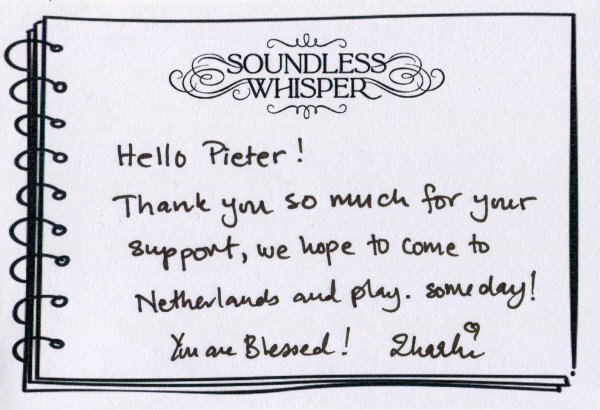 SOUNDLESS
WHISPER
Hello Pieter!
Thank you so much for your
support, we hope to come to
Netherlands and play. someday!
You are Blessed!